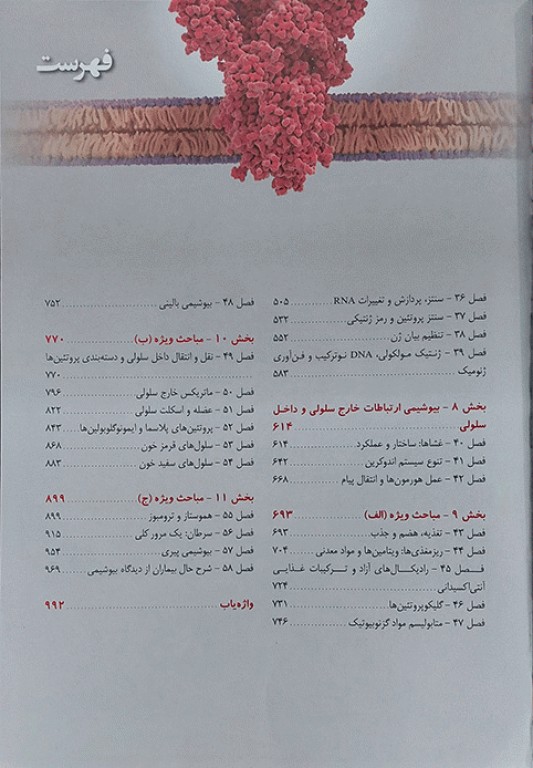 فهرست
فصل ۳۶ - سنتز، پردازش و تغییرات RNA ............ ۵۰۵
فصل ۳۷ - سنتز پروتئین و رمز ژنتیکی ............ ۵۳۲
فصل ۳۸ - تنظیم بیان ژن ............ ۵۵۲
فصل ۳۹ - ژنتیک مولکولی، DNA نوترکیب و فن‌آوری
ژنومیک ............ ۵۸۳
بخش ۸ - بیوشیمی ارتباطات خارج سلولی و داخل
سلولی ............ ۶۱۴
فصل ۴۰ - غشاها: ساختار و عملکرد ............ ۶۱۴
فصل ۴۱ - تنوع سیستم اندوکرین ............ ۶۴۲
فصل ۴۲ - عمل هورمون‌ها و انتقال پیام ............ ۶۶۸
بخش ۹ - مباحث ویژه (الف) ............ ۶۹۳
فصل ۴۳ - تغذیه، هضم و جذب ............ ۶۹۳
فصل ۴۴ - ریزمغذی‌ها: ویتامین‌ها و مواد معدنی ............ ۷۰۴
فصل ۴۵ - رادیکال‌های آزاد و ترکیبات غذایی
آنتی‌اکسیدانی ............ ۷۲۴
فصل ۴۶ - گلیکوپروتئین‌ها ............ ۷۳۱
فصل ۴۷ - متابولیسم مواد گزنوبیوتیک ............ ۷۴۶
فصل ۴۸ - بیوشیمی بالینی ............ ۷۵۲
بخش ۱۰ - مباحث ویژه (ب) ............ ۷۷۰
فصل ۴۹ - نقل و انتقال داخل سلولی و دسته‌بندی پروتئین‌ها
............ ۷۷۰
فصل ۵۰ - ماتریکس خارج سلولی ............ ۷۹۶
فصل ۵۱ - عضله و اسکلت سلولی ............ ۸۲۲
فصل ۵۲ - پروتئین‌های پلاسما و ایمونوگلوبولین‌ها ............ ۸۴۳
فصل ۵۳ - سلول‌های قرمز خون ............ ۸۶۸
فصل ۵۴ - سلول‌های سفید خون ............ ۸۸۳
بخش ۱۱ - مباحث ویژه (ج) ............ ۸۹۹
فصل ۵۵ - هموستاز و ترومبوز ............ ۸۹۹
فصل ۵۶ - سرطان: یک مرور کلی ............ ۹۱۵
فصل ۵۷ - بیوشیمی پیری ............ ۹۵۴
فصل ۵۸ - شرح حال بیماران از دیدگاه بیوشیمی ............ ۹۶۹
واژه‌یاب ............ ۹۹۲